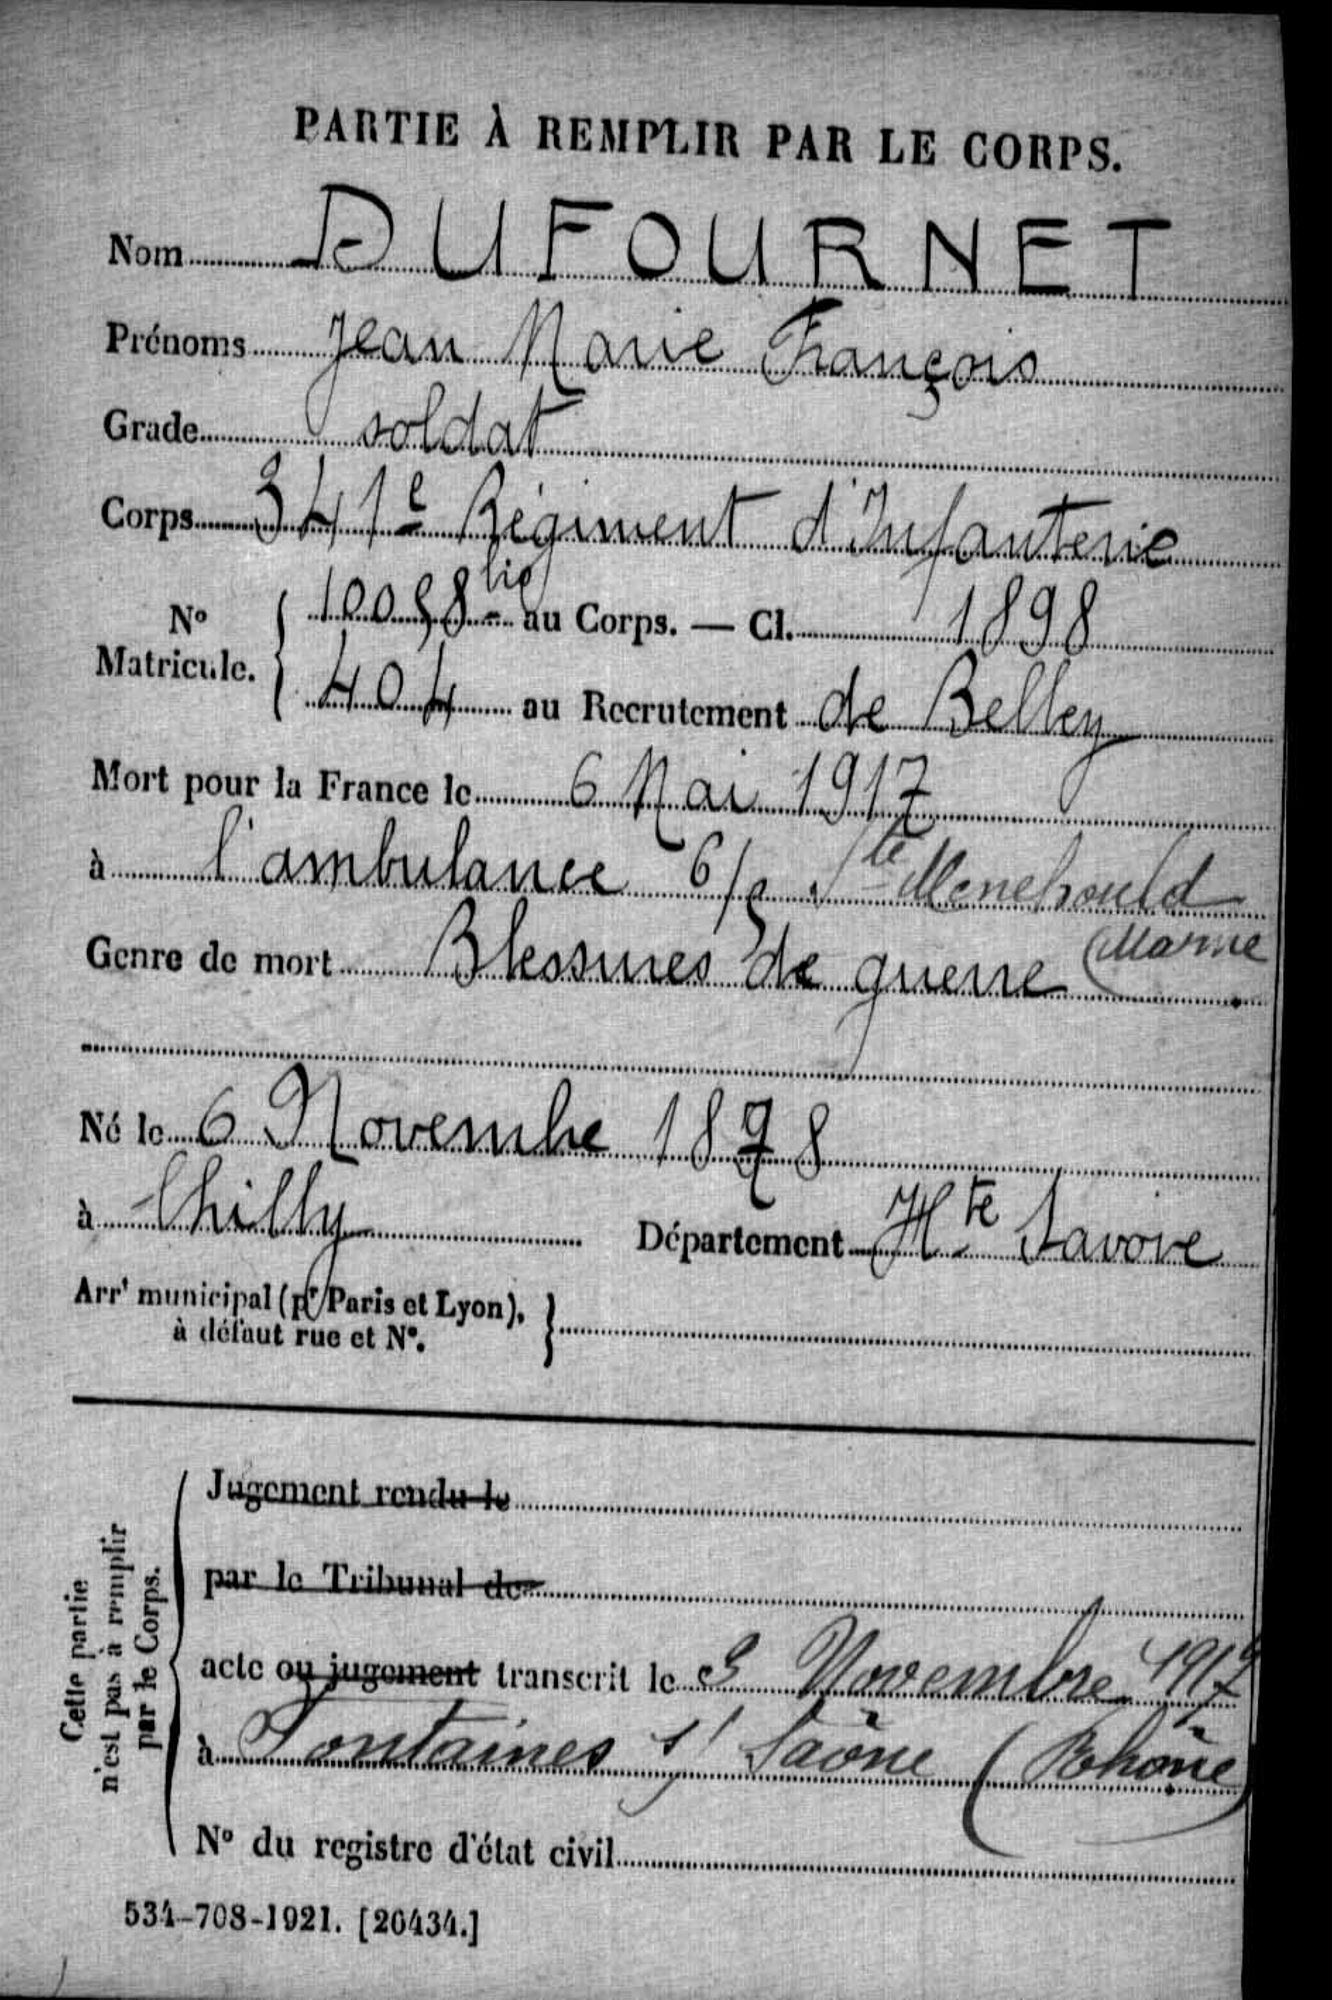 PARTIE À REMPLIR PAR LE CORPS.
Nom DUFOURNET
Prénoms Jean Marie François
Grade soldat
Corps 341e Régiment d'Infanterie
No Matricule. 10058 bis au Corps. — Cl. 1898
404 au Recrutement de Belley
Mort pour la France le 6 Mai 1917
à l'ambulance Ste Menehould
Marne
Genre de mort Blessures de guerre
Né le 6 Novembre 1878
à Chilly Département Hte Savoie
Arrt municipal (pr Paris et Lyon),
à défaut rue et No.
Cette partie
n'est pas à remplir
par le Corps.
Jugement rendu le
par le Tribunal de
acte ou jugement transcrit le 3 Novembre 1917
à Fontaines s/ Saône (Rhône)
No du registre d'état civil
534-708-1921. [20434.]